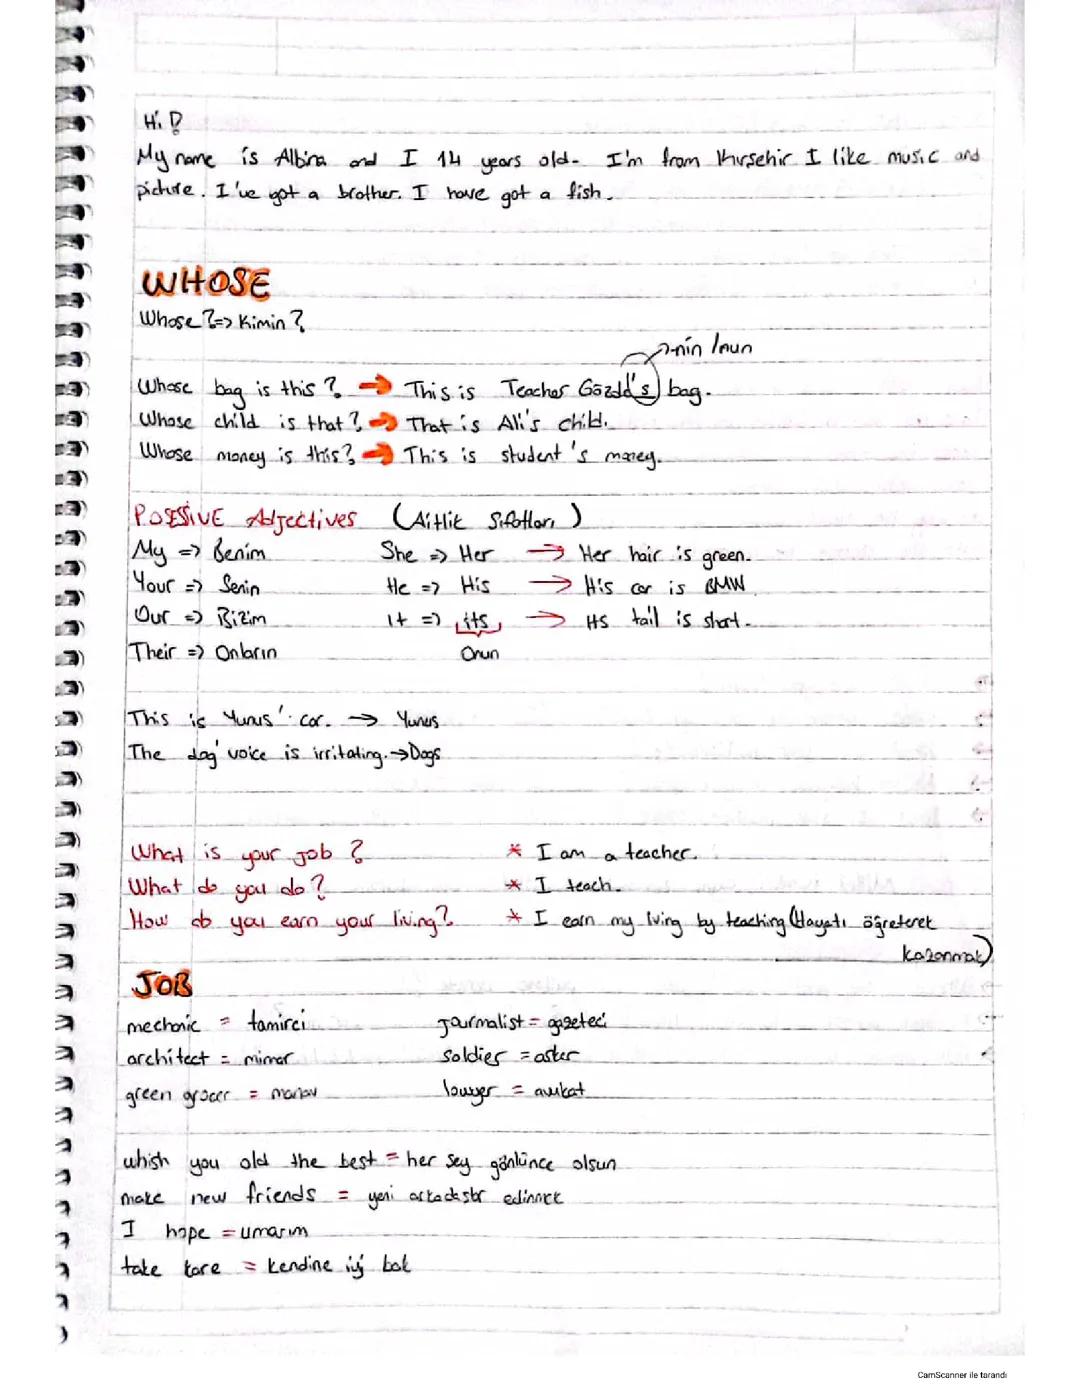 Hi!
My name is Albina and I 14 years old. I'm from Kırşehir I like music and
picture. I've got a brother. I have got a fish.
WHOSE
Whose? => Kimin?
-nin /nun
Whose bag is this? → This is Teacher Gözde's bag.
Whose child is that? → That is Ali's child.
Whose money is this? → This is student's money.
POSESSIVE Adjectives (Aitlik Sıfatları)
My => Benim She => Her → Her hair is green.
Your => Senin He => His → His car is BMW
Our => Bizim It => its → Its tail is short.
Their => Onların Onun
This is Yunus' car. → Yunus
The dog' voice is irritating. → Dogs
What is your job? * I am a teacher.
What do you do? * I teach.
How do you earn your living? * I earn my lving by teaching (Hayatı öğreterek
kazanmak)
JOB
mechanic = tamirci journalist = gazeteci
architect = mimar soldier = asker
green grocer = manav lawyer = avukat
whish you old the best = her şey gönlünce olsun
make new friends = yeni arkadaşlar edinmek
I hope = umarım
take kare = kendine iyi bak
CamScanner ile tarandı